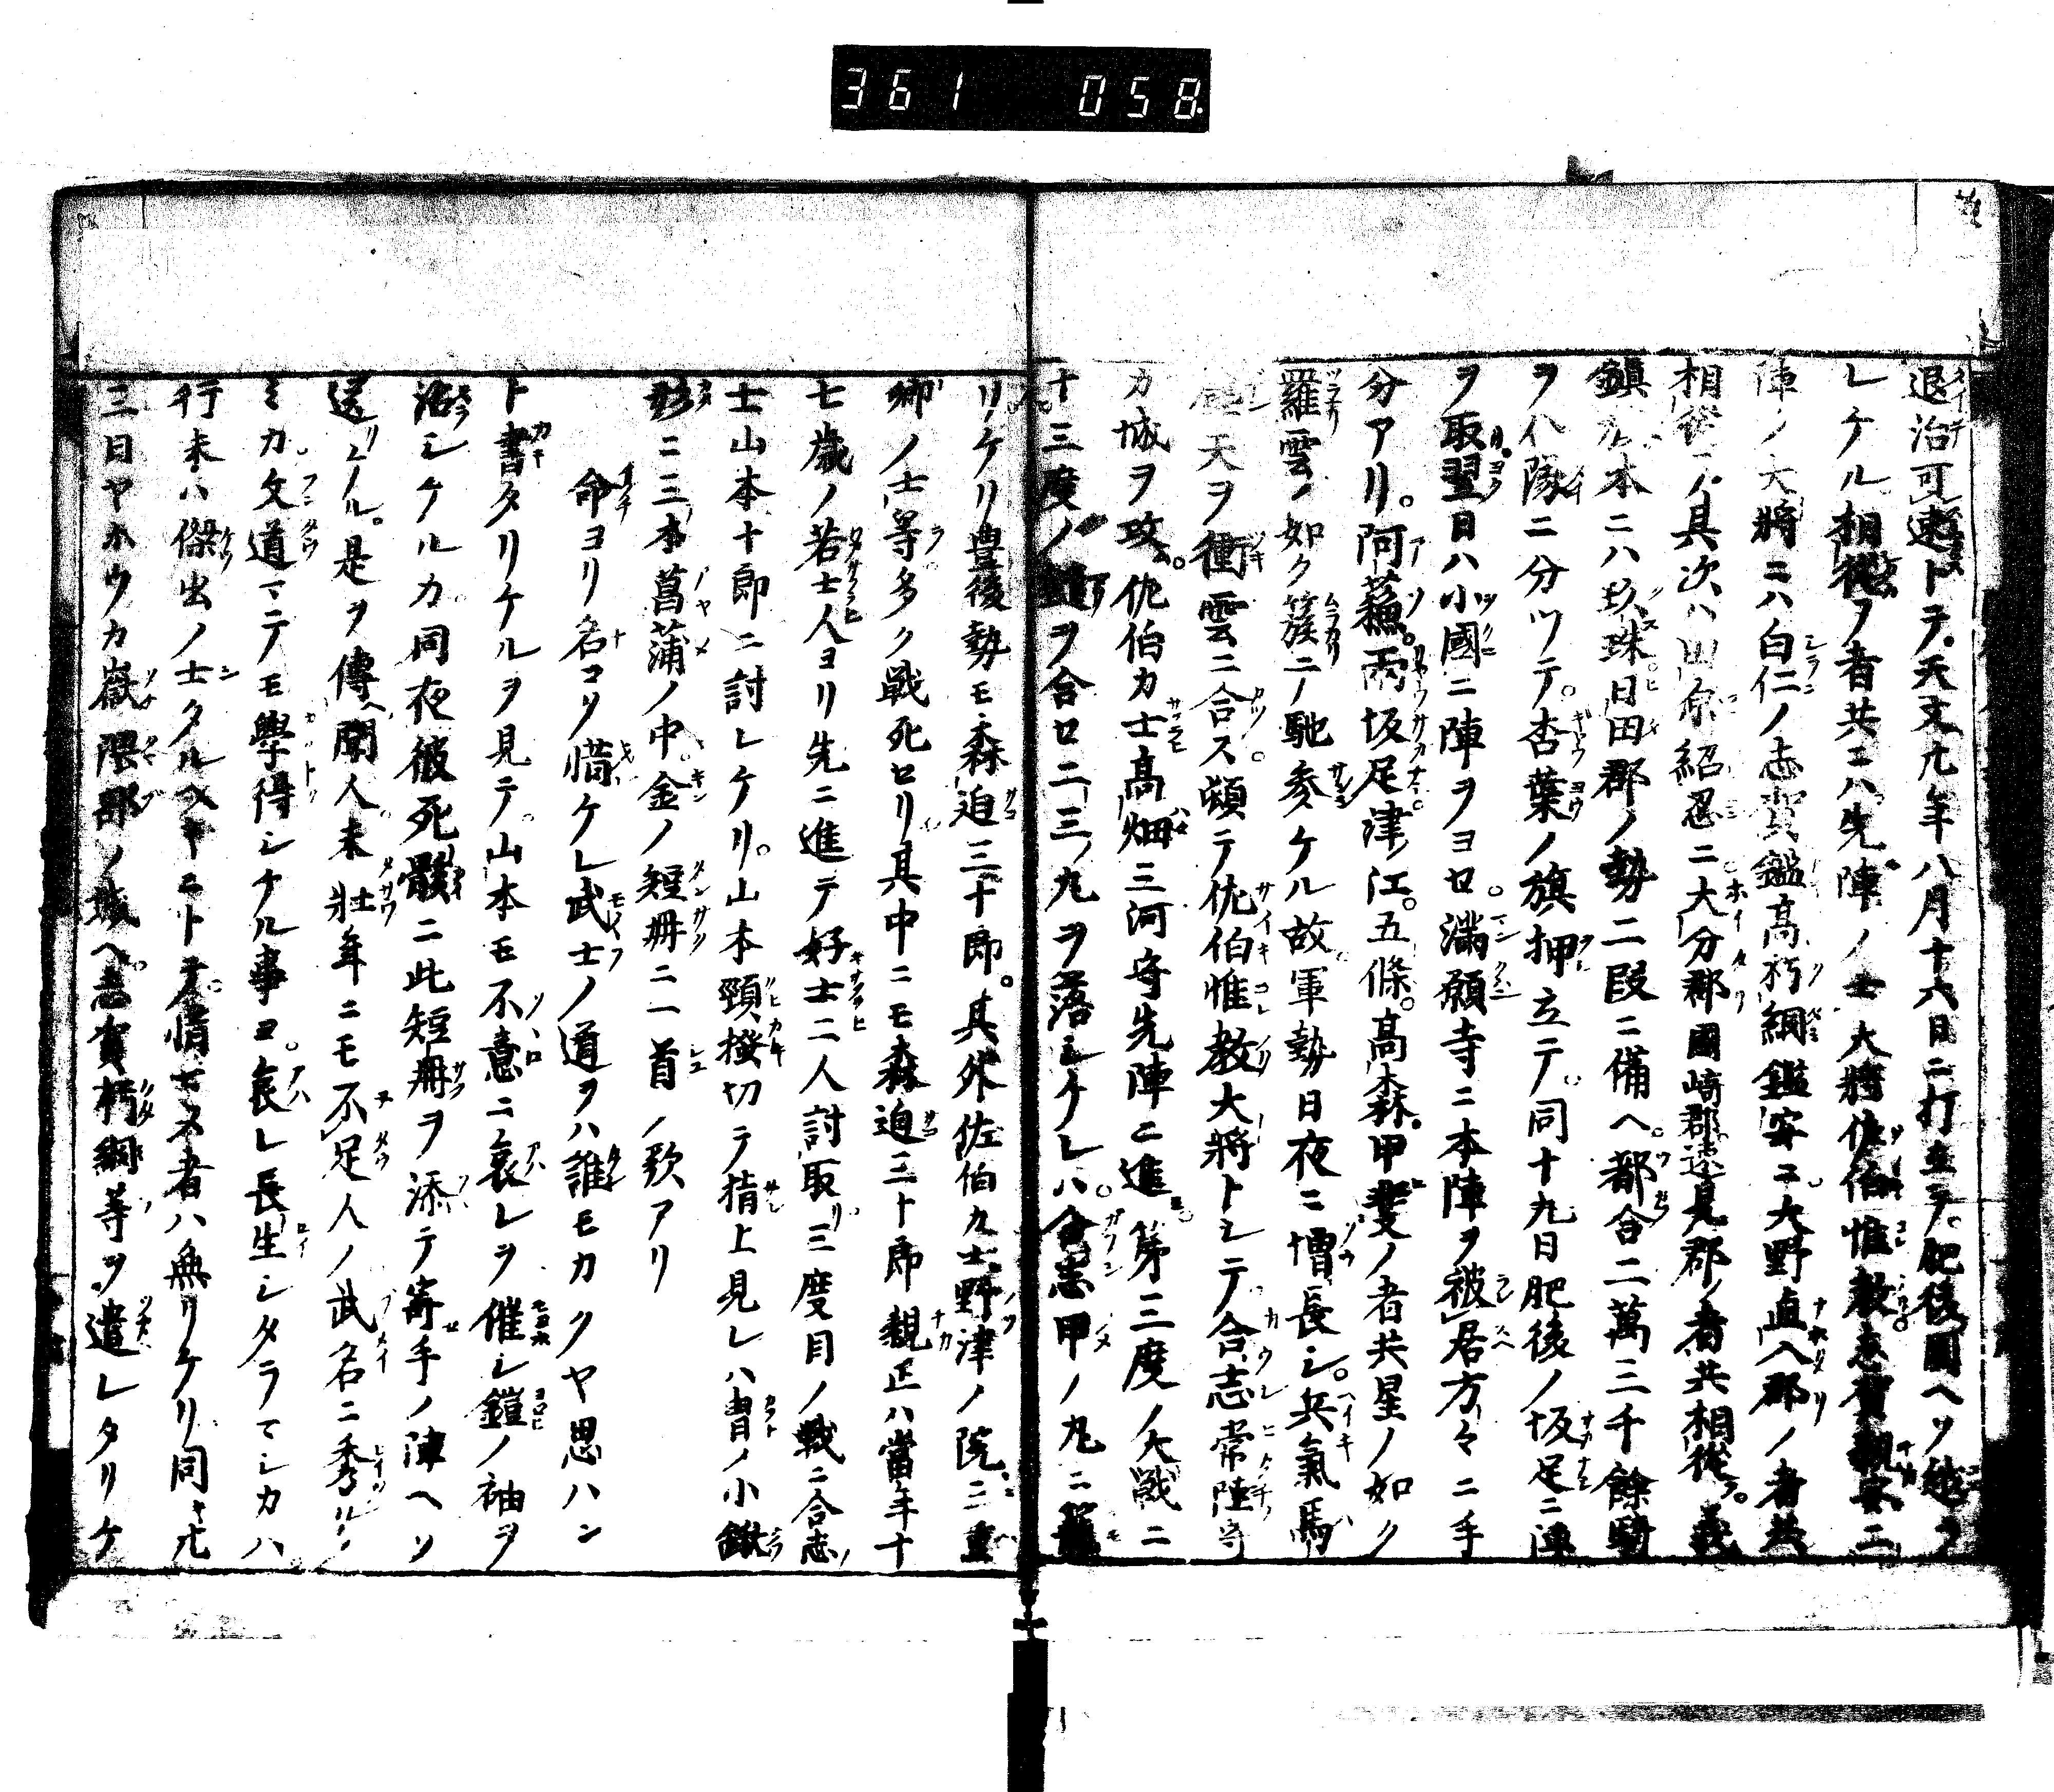 361 058
退治可速トテ天文九年八月十六日ニ打立テ肥後國ヘソ越ラ
レケル相從フ者共ニハ先陣ノ士大將佐伯惟教志賀親安二
陣ノ大將ニハ白仁ノ志賀鑑高朽網鑑安ニ大野直入郡ノ者共
相從フ其次ハ田原紹忍ニ大分郡國崎郡速見郡ノ者共相從フ義
鎮カ本ニハ玖珠日田郡ノ勢二段ニ備ヘ都合二萬三千餘騎
ヲ八隊ニ分ツテ杏葉ノ旗押立テ同十九日肥後ノ坂足ニ陣
ヲ取翌日ハ小國ニ陣ヲヨセ満願寺ニ本陣ヲ被居方々ニ手
分アリ阿蘓両坂足津江五條高森甲斐ノ者共星ノ如ク
羅雲ノ如ク簇ニノ馳参ケル故軍勢日夜ニ増長シ兵氣馬
天ヲ衝雲ニ合ス頓テ佐伯惟教大將トシテ合志常陸守
カ城ヲ攻佐伯カ士高畑三河守先陣ニ進第三度ノ大戦ニ
十三度ノ鑓ヲ合セ二三ノ丸ヲ落シケレハ合志甲ノ丸ニ籠
リケリ豊後勢モ森迫三十郎其外佐伯カ士野津ノ院三重
郷ノ士等多ク戦死セリ其中ニモ森迫三十郎親正ハ當年十
七歳ノ若士人ヨリ先ニ進テ好士二人討取三度目ノ戦ニ合志ノ
士山本十郎ニ討レケリ山本頸掻切テ指上見レハ冑ノ小鍬
形ニ三本菖蒲ノ中金ノ短冊ニ一首ノ歌アリ
命ヨリ名コソ惜ケレ武士ノ道ヲハ誰モカクヤ思ハン
ト書タリケルヲ見テ山本モ不意ニ哀レヲ催シ鎧ノ袖ヲ
沾シケルカ同夜彼死骸ニ此短冊ヲ添テ寄手ノ陣ヘソ
送リケル是ヲ傳ヘ聞人未壮年ニモ不足人ノ武名ニ秀ルノ
ミカ文道マテモ學得シナル事ヨ哀レ長生シタラマシカハ
行末ハ傑出ノ士タルヘキニトテ惜セヌ者ハ無リケリ同キ廿
三日ヤホウカ嶽隈部ノ城ヘ志賀朽網等ヲ遣シタリケ